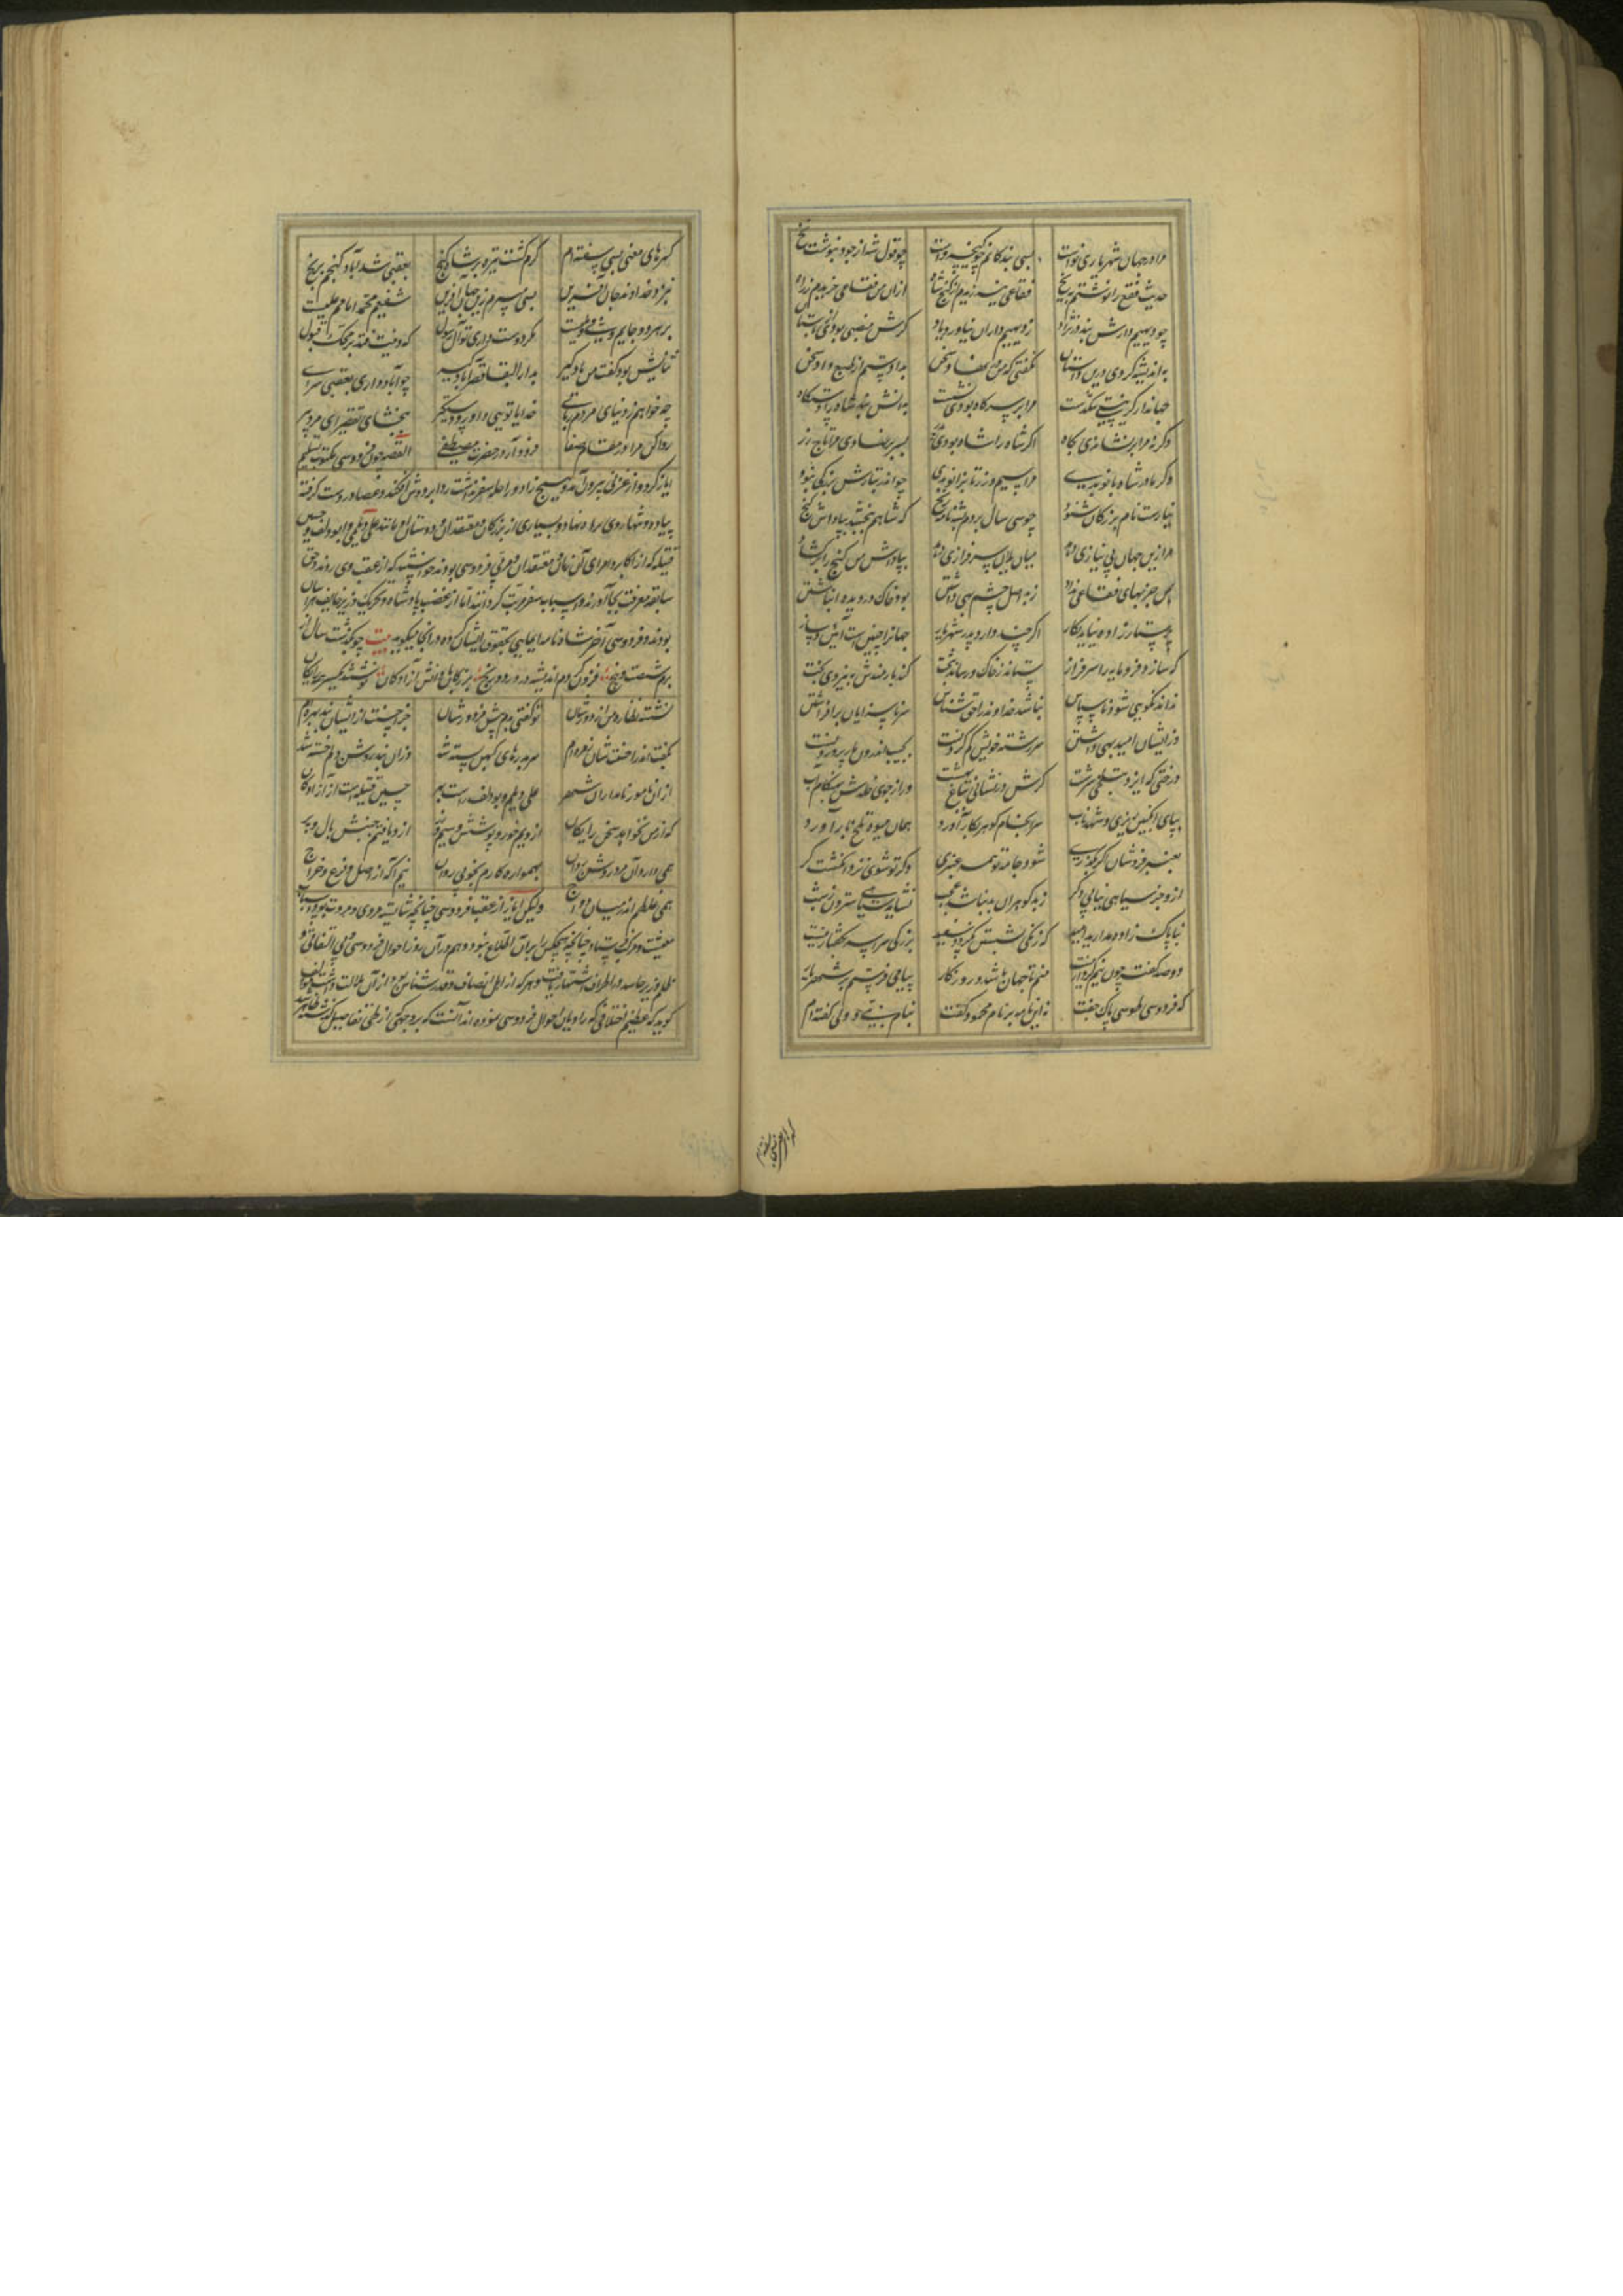 مرا در جهان شهریاری نو است بسی بندگانم چو کیخسرو است چو قول شد از جود ننوشت گنج
حدیث فقع را نوشتم بریخ فقاعی نیرزیدم از گنج شاه از آن من فقاعی خریدم ز راه
چو دیهیم دارش نبد در نژاد ز دیهیم داران نیاورد یاد گرش منصبی بودی آن
به اندیشه کردی درین داستان نگفتی که من سخن بدادستم از طبع داد سخن
جهاندار اگر نیستی تنگدست مرا بر سر گاه بودی نشست به دانش نبد شاه را دستگاه
وگر نه مرا برنشاندی به گاه اگر شاه را شاه بودی پدر بسر بر نهادی مرا تاج زر
وگر مادر شاه بانو بدی مرا سیم و زر تا بزانو بدی چو اندر تبارش بزرگی نبود
نیارست نام بزرگان شنود چو سی سال بردم به شهنامه رنج که شاهم ببخشد بپاداش گنج
مرا زین جهان بی نیازی دهد میان یلان سرفرازی دهد بپاداش من گنج را برگشاد
بمن جز بهای فقاعی نداد ز بد اصل چشم بهی داشتن بود خاک در دیده انباشتن
پرستار زاده نیاید بکار اگر چند دارد پدر شهریار جهان را چنین است آئین و ساز
که سازد فرومایه را سرفراز ستاند ز خاک و رساند بتخت کند بارمندش به نیروی بخت
نداند نکویی شود ناسپاس نباشد خداوند را حق شناس سر ناسزایان برافراشتن
وز ایشان امید بهی داشتن سر رشته خویش گم کردنست بجیب اندرون مار پروردنست
درختی که ایزد بتلخی سرشت گرش در نشانی بباغ بهشت ور از جوی خلدش بهنگام آب
بپای انگبین ریزی و شهد ناب سرانجام گوهر بکار آورد همان میوه تلخ بار آورد
بعنبر فروشان اگر بگذری شود جامه تو همه عنبری وگر تو شوی نزد انگشت گر
ازو جز سیاهی نیابی دگر ز بد گوهران بد نباشد عجب نشاید سیاهی ستردن ز شب
بناپاک زاده مدارید امید که زنگی بشستن نگردد سفید بزرگی سراسر بگفتار نیست
دو صد گفته چون نیم کردار نیست منم تا جهان باشد و روزگار پیامی فرستم بر شهریار
که فردوسی طوسی پاک جفت نه این نامه بر نام محمود گفت بنام نبی و ولی گفته ام
گهرهای معنی بسی سفته ام گرم گشت تیره بعقبی شد آباد گنجم بریخ
بنزد خداوند جان آفرین بسی شفیعم محمد امامم علیست
بر هر دو جایم گرو دوست داری تو آل رسول
ستایش بود گفت من یادگیر بدار البقا قصر آباد چو آباد داری بعقبی سرای
چه خواهم ز دنیای مردم ربای خدایا تویی داور و دستگیر ببخشای تقصیر ای مرد پیر
روا کن مرا در مقام صفا فرود آر در حضرت مصطفی القصه چون فردوسی مکتوب تسلیم
ایاز کرد و از غزنی بیرون آمد و هیچ زاد و راحله سفر نداشت ردا بر دوش افکند و عصا در دست گرفته
پیاده و تنها روی براه نهاد و بسیاری از بزرگان و معتقدان و دوستان او مانند علی دیلمی و ابودلف و حسین
قتیبه که از اکابر و امرای آن زمان و معتقدان و مربی فردوسی بودند خواستند که از عقب وی روند و حق
سابقه معرفت بجا آورند و اسباب سفر مرتب گردانند اما از غضب پادشاه و تحریک وزیر خایف و هراسان
بودند و فردوسی آخر شاه نامه ایمایی بحقوق ایشان کرده در آنجا میگوید بیت چو بگذشت سال از
برم شصت و پنج فزون کردم اندیشه درد و رنج بزرگان و با دانش آزادگان نوشتند یکسر رایگان
نشسته نظاره من از دورشان تو گفتی بدم پیش مزدورشان جز احسنت از ایشان نبد بهره ام
بکفت اندر احسنت شان زهره ام سر بدره های کهن بسته شد وزان بند روشن دلم خسته شد
از ان نامور نامداران شهر علی دیلم و بودلف راست بهر حسین قتیبه است از آزادگان
که از من نخواهد سخن رایگان ازویم خور و پوشش و سیم و زر ازو یافتم جنبش بال و پر
همی دارد آن مرد روشن روان بهمواره کارم بخوبی روان نیم آگه از اصل و فرع و خراج
همی غلطم اندر میان دواج ولیکن ایاز از عقب فردوسی چنانچه شایسته مروی و مروت بود
معیشت و مرکب فرستاد چنانچه هیچکس را بر آن اطلاع نبود و هم در آن روز احوال فردوسی و بی التفاتی و
ظلم وزیر حاسد در اطراف اشتهار یافت و هر که از اهل انصاف و قدرشناس بود از آن ملالت
گوید که عظیم اختلافی که راویان احوال فردوسی نموده اند آنست که